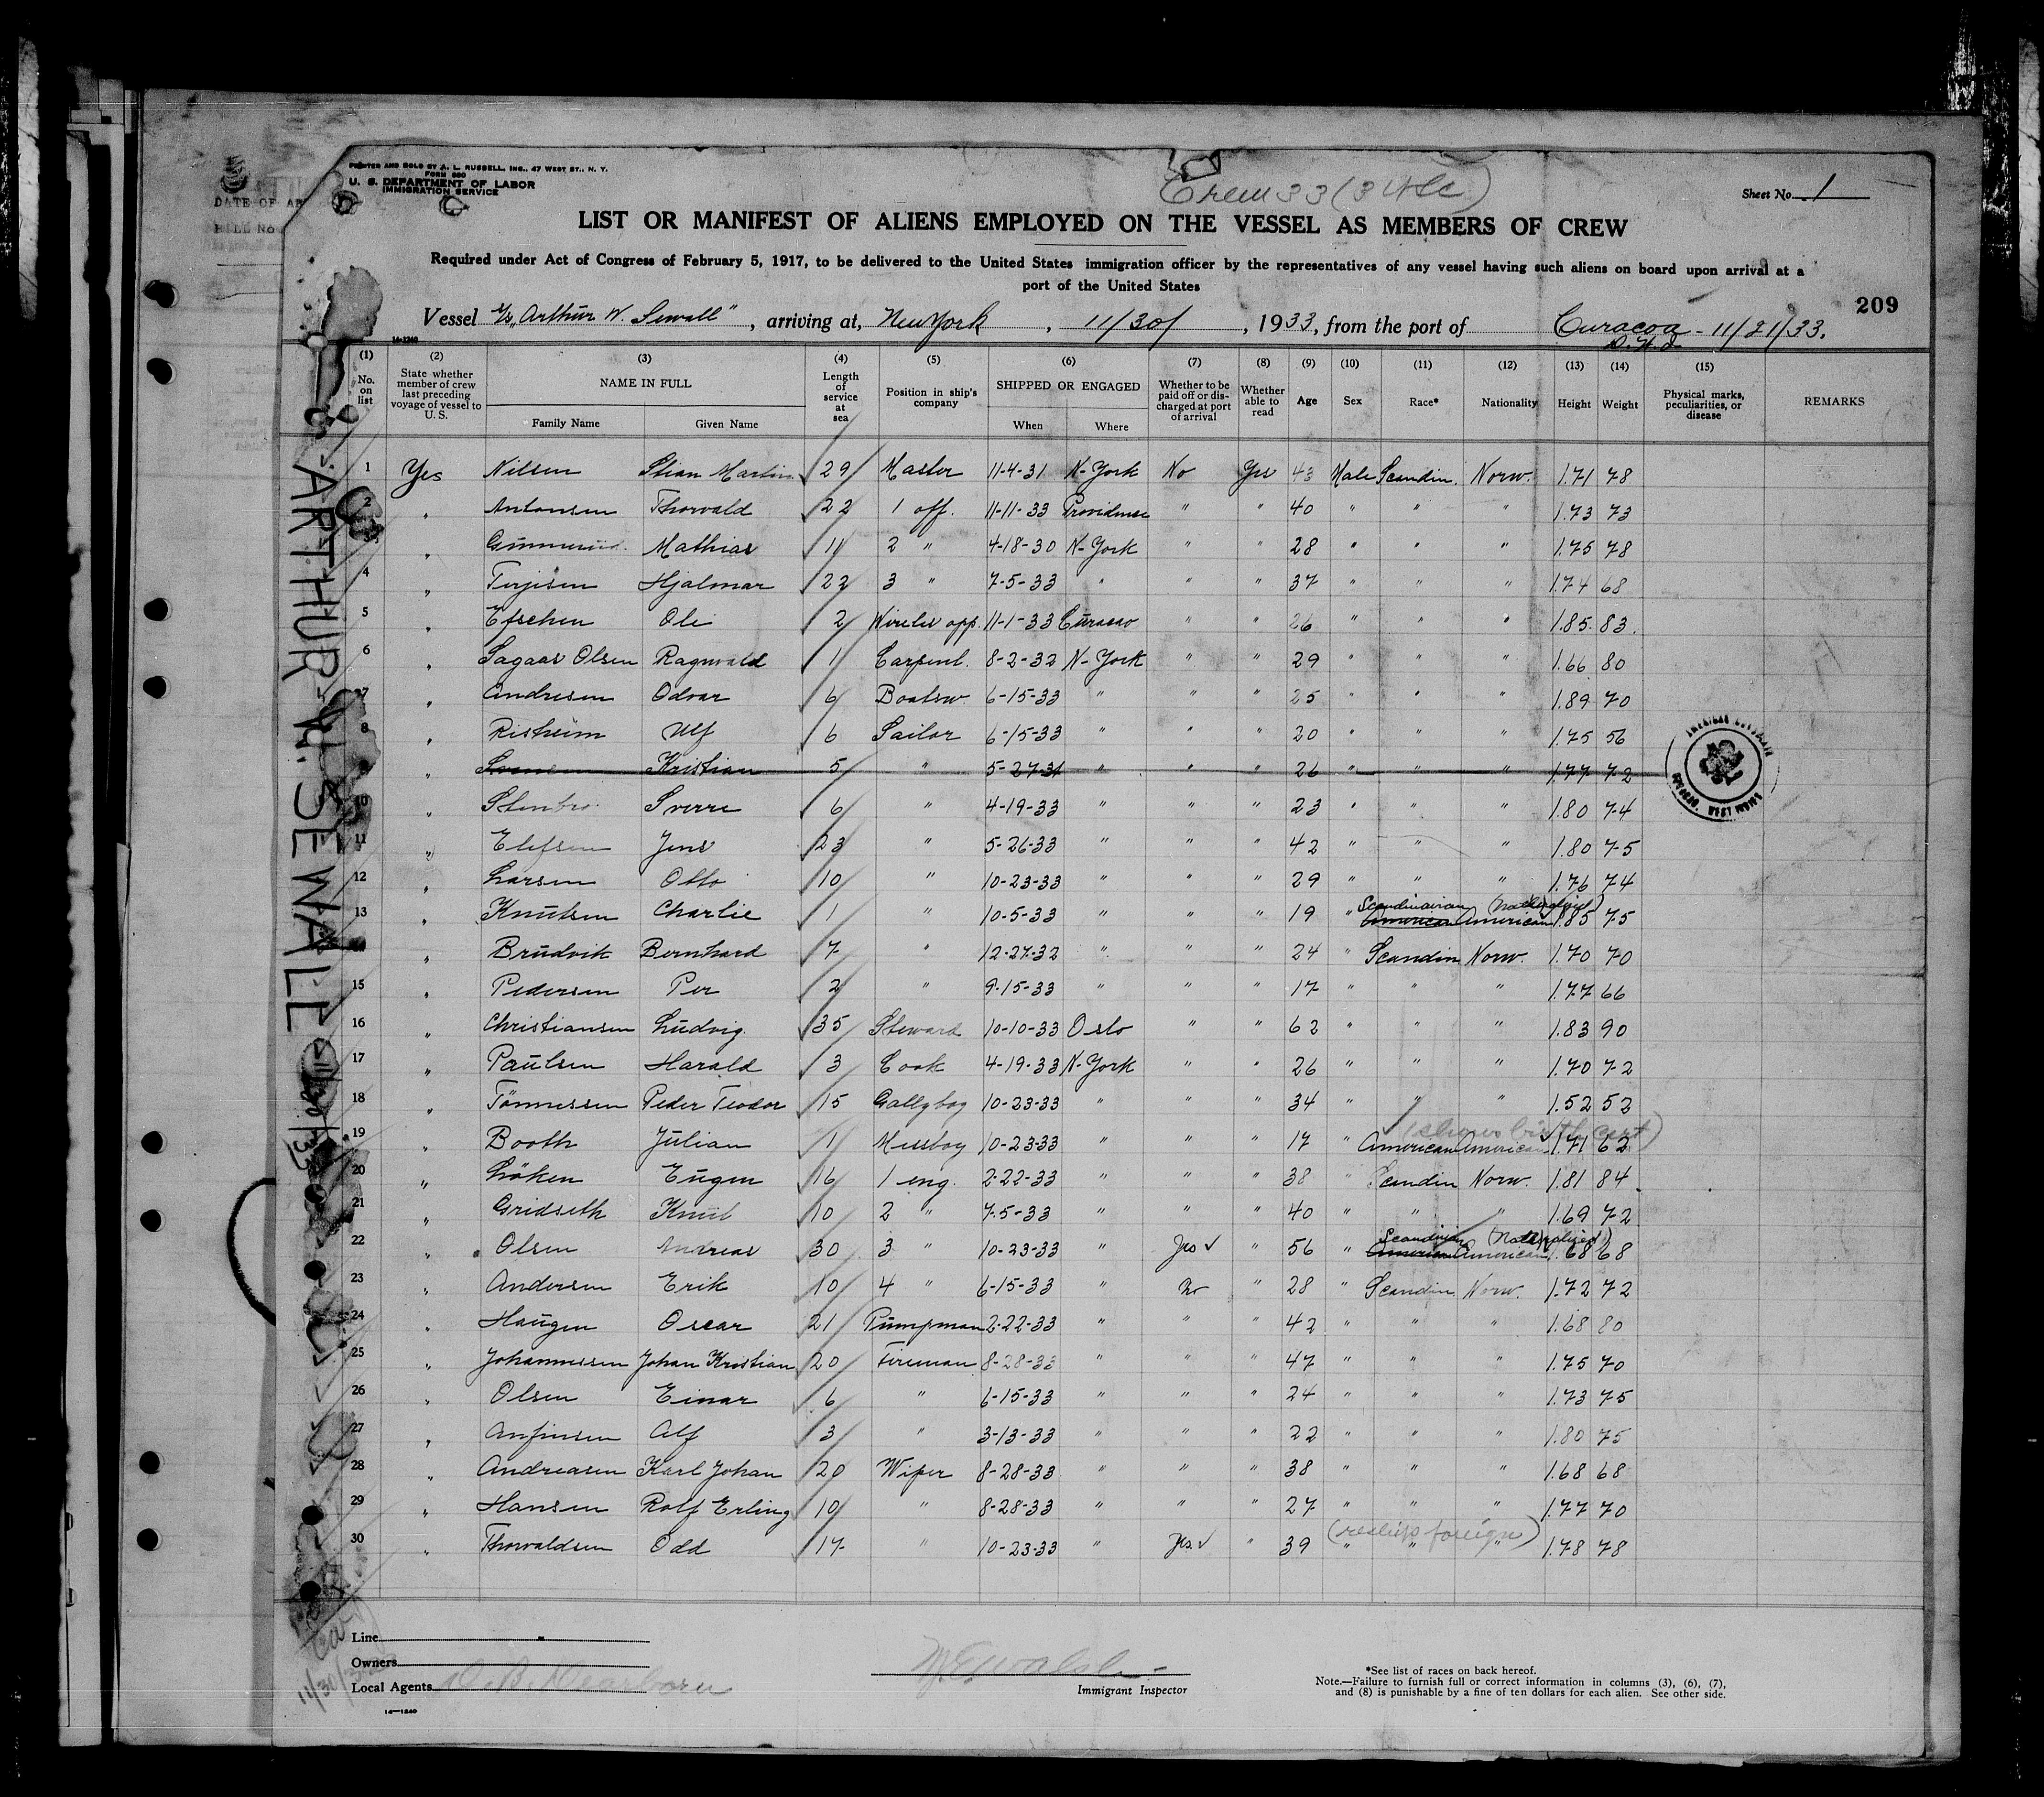 PRINTED AND SOLD BY A. L. RUSSELL, INC., 47 WEST ST., N. Y.
U. S. DEPARTMENT OF LABOR
IMMIGRATION SERVICE
DATE OF AR
BILL No
Sheet No. 1
LIST OR MANIFEST OF ALIENS EMPLOYED ON THE VESSEL AS MEMBERS OF CREW
Required under Act of Congress of February 5, 1917, to be delivered to the United States immigration officer by the representatives of any vessel having such aliens on board upon arrival at a
port of the United States
209
Vessel "Arthur W. Sewall", arriving at, New York, 11/30/, 1933, from the port of Curacoa - 11/21/33.
14-1240
(1) (2) (3) (4) (5) (6) (7) (8) (9) (10) (11) (12) (13) (14) (15)
No. on list
State whether member of crew last preceding voyage of vessel to U. S.
NAME IN FULL
Family Name Given Name
Length of service at sea
Position in ship's company
SHIPPED OR ENGAGED
When Where
Whether to be paid off or discharged at port of arrival
Whether able to read
Age Sex Race* Nationality Height Weight
Physical marks, peculiarities, or disease
REMARKS
1 Yes Nilsen Stian Martin 29 Master 11-4-31 N-York No Yes 43 Male Scandin. Norw. 1.71 78
2 " Antonsen Thorvald 22 1 off. 11-11-33 Providence " " 40 " " " 1.73 73
" Mathias 11 2 " 4-18-30 N-York " " 28 " " " 1.75 78
4 " Terjesen Hjalmar 22 3 " 7-5-33 " " " 37 " " " 1.74 68
5 " Ole 2 Wireles opp. 11-1-33 Curacao " " 26 " " " 1.85 83.
6 " Sagaas Olsen Ragnvald 1 Carpent. 8-2-32 N-York " " 29 " " " 1.66 80
7 " Andresen Odvar 6 Boatsw. 6-15-33 " " " 25 " " " 1.89 70
8 " Risheim Ulf 6 Sailor 6-15-33 " " " 20 " " " 1.75 56
" Kristian 5 " 5-27-31 " " " 26 " " " 1.77 72
10 " Stenbro Sverre 6 " 4-19-33 " " " 23 " " " 1.80 74
11 " Elefsen Jens 23 " 5-26-33 " " " 42 " " " 1.80 75
12 " Larsen Otto 10 " 10-23-33 " " " 29 " " " 1.76 74
Scandinavian (Naturalized)
13 " Knutsen Charlie 1 " 10-5-33 " " " 19 " American American 1.85 75
14 " Brudvik Bernhard 7 " 12-27-32 " " " 24 " Scandin Norw. 1.70 70
15 " Pedersen Per 2 " 9-15-33 " " " 17 " " " 1.77 66
16 " Christiansen Ludvig 35 Steward 10-10-33 Oslo " " 62 " " " 1.83 90
17 " Paulsen Harald 3 Cook 4-19-33 N-York " " 26 " " " 1.70 72
18 " Tönnessen Peder Teodor 15 Gallyboy 10-23-33 " " " 34 " " " 1.52 52
(shows birth cert)
19 " Booth Julian 1 Messboy 10-23-33 " " " 17 " American American 1.71 62
20 " Löken Eugen 16 1 eng. 2-22-33 " " " 38 " Scandin Norw. 1.81 84
21 " Gridseth Knut 10 2 " 7-5-33 " " " 40 " " " 1.69 72
(Naturalized)
22 " Olsen Andreas 30 3 " 10-23-33 " Yes " 56 " American American 1.68 68
23 " Andersen Erik 10 4 " 6-15-33 " No " 28 " Scandin Norw. 1.72 72
24 " Haugen Oscar 21 Pumpman 2-22-33 " " " 42 " " " 1.68 80
25 Johannessen Johan Kristian 20 Fireman 8-28-33 " " " 47 " " " 1.75 70
26 " Olsen Einar 6 " 6-15-33 " " " 24 " " " 1.73 75
27 " Anfinsen Alf 3 " 3-13-33 " " " 22 " " " 1.80 75
28 " Andreasen Karl Johan 20 Wiper 8-28-33 " " " 38 " " " 1.68 68
29 " Hansen Rolf Erling 10 " 8-28-33 " " " 27 " " " 1.77 70
(reships foreign)
30 " Thorvaldsen Odd 17 " 10-23-33 " Yes " 39 " " " 1.78 78
ARTHUR W. SEWALL
11/30/33
Line
Owners
Local Agents
Immigrant Inspector
*See list of races on back hereof.
Note.—Failure to furnish full or correct information in columns (3), (6), (7),
and (8) is punishable by a fine of ten dollars for each alien. See other side.
14—1240